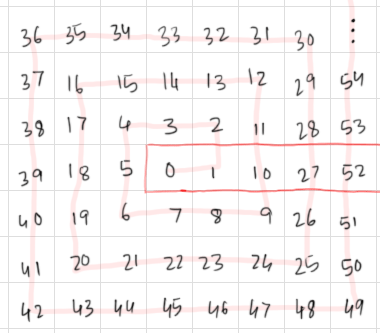 36 35 34 33 32 31 30 ⋮
37 16 15 14 13 12 29 54
38 17 4 3 2 11 28 53
39 18 5 0 1 10 27 52
40 19 6 7 8 9 26 51
41 20 21 22 23 24 25 50
42 43 44 45 46 47 48 49